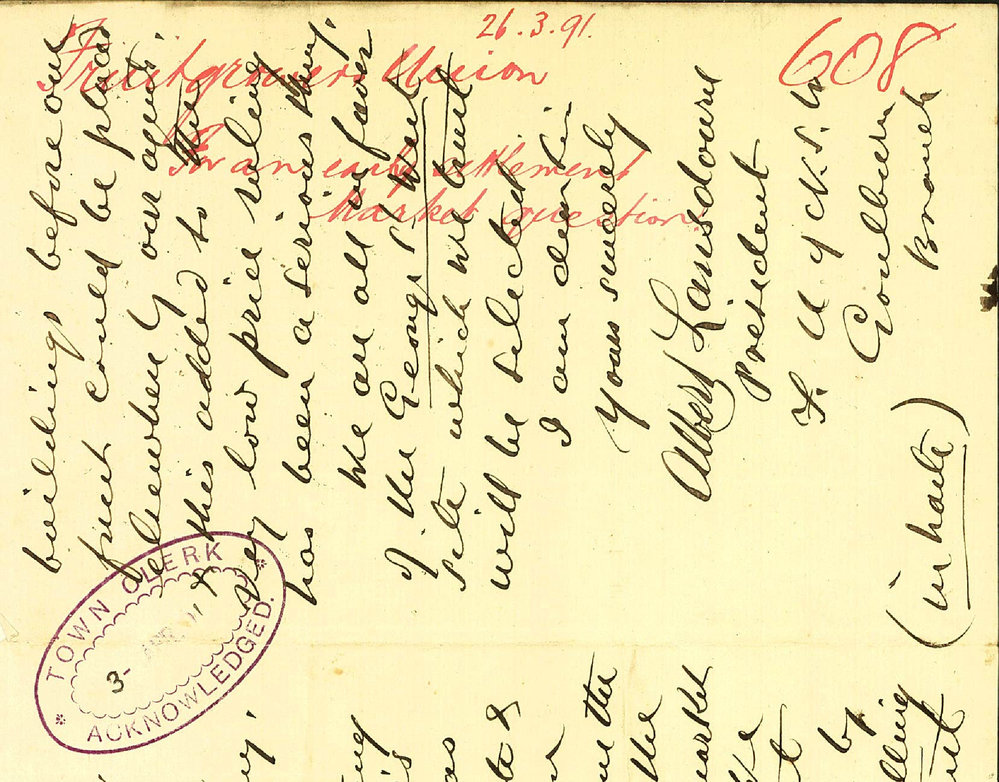 26.3.91.
608
Fruitgrowers Union
For an early settlement
Market question.
buildings before our
fruit could be placed
elsewhere by our agents.
& this added to the
very low price ruling
has been a serious thing.
We are all in favor
of the George St West
Site which we trust
will be selected
I am dear Sir
Yours sincerely
Albert Lansdowne
President
F. U. of N.S.W
Goulburn
Branch
(in haste)
TOWN CLERK
3-
ACKNOWLEDGED.
the
market
by